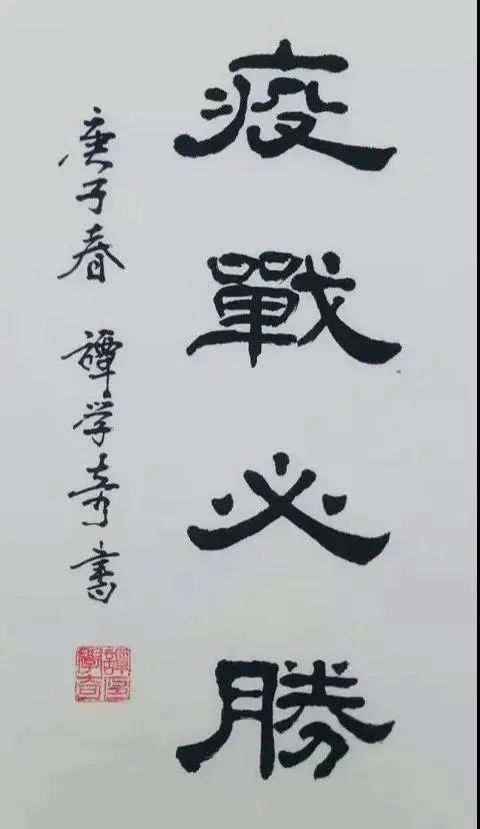 疫戰必勝
庚子春 譚学奇書